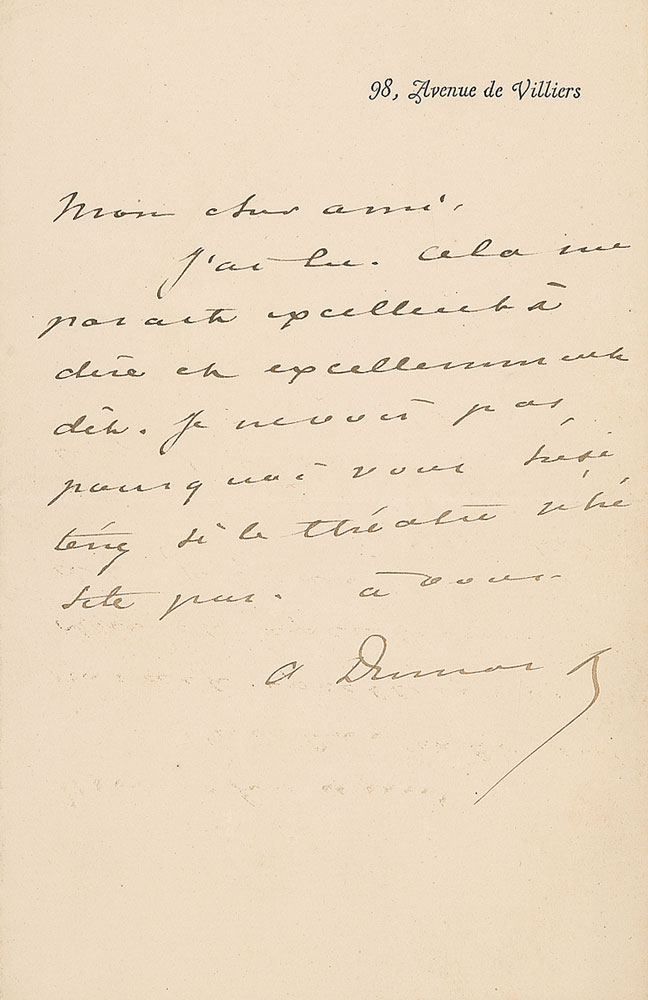 98, Avenue de Villiers
Mon cher ami,
J'ai lu. Cela me
parait excellent à
dire et excellemment
dit. Je ne vois pas
pourquoi vous hési
térez si le théâtre n'hé
site pas. à vous
A Dumas f